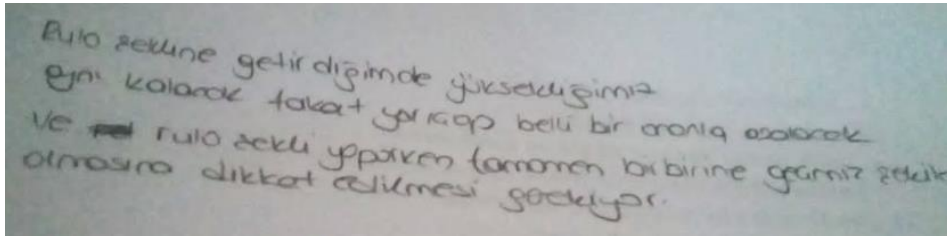 Rulo şekline getirdiğimde yüksekliğimiz
aynı kalarak fakat yarıçap belli bir oranla azalarak
ve rulo şekli yaparken tamamen birbirine geçmiş şekilde
olmasına dikkat edilmesi gerekiyor.